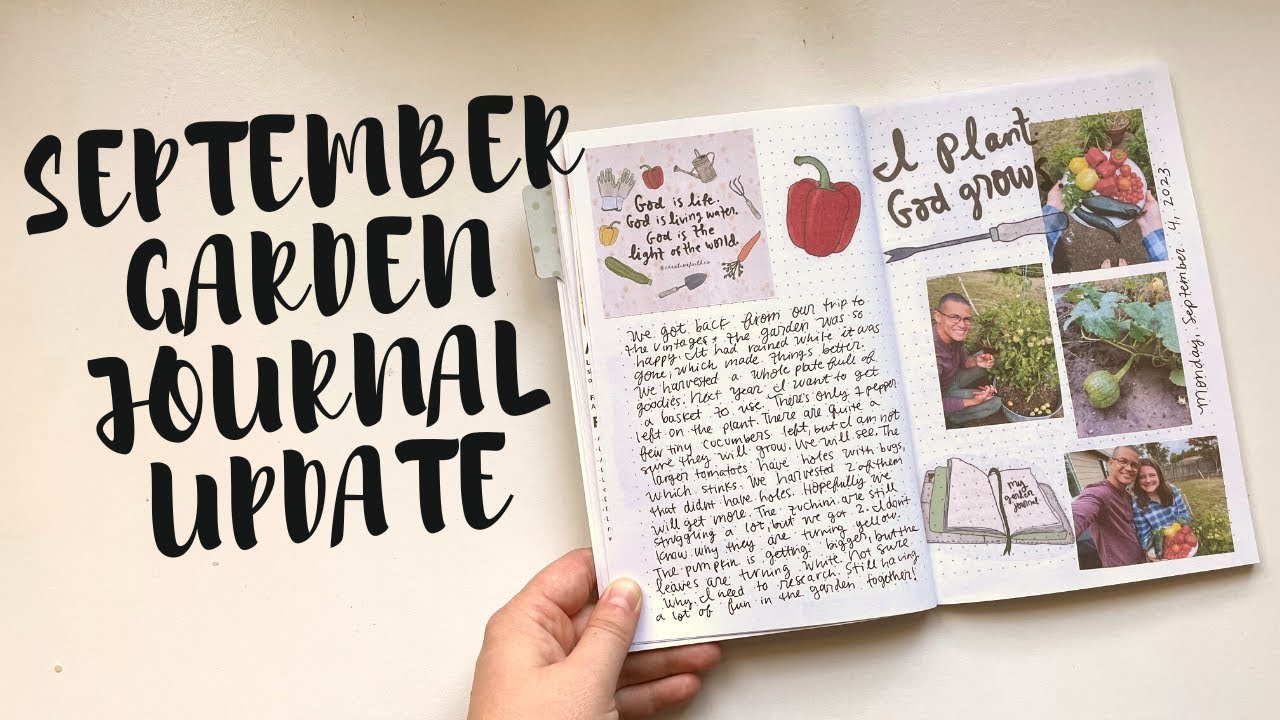 SEPTEMBER
GARDEN
JOURNAL
UPDATE
God is life.
God is living water.
God is the
light of the world.
We got back from our trip to
the vintages & the garden was so
happy. It had rained while it was
gone, which made things better.
We harvested a whole plate full of
goodies. Next year I want to get
a basket to use. There's only 1 pepper
left on the plant. There are quite a
few tiny cucumbers left, but I am not
sure they will grow. We will see. The
larger tomatoes have holes with bugs,
which stinks. We harvested 2 of them
that didnt have holes. Hopefully we
will get more. The zuchini are still
struggling a lot, but we got 2. I don't
know why they are turning yellow.
The pumpkin is getting bigger, but the
leaves are turning white. Not sure
why. I need to research. Still having
a lot of fun in the garden, together!
I plant
God grow
Monday, September 4, 2023
my
garden
journal